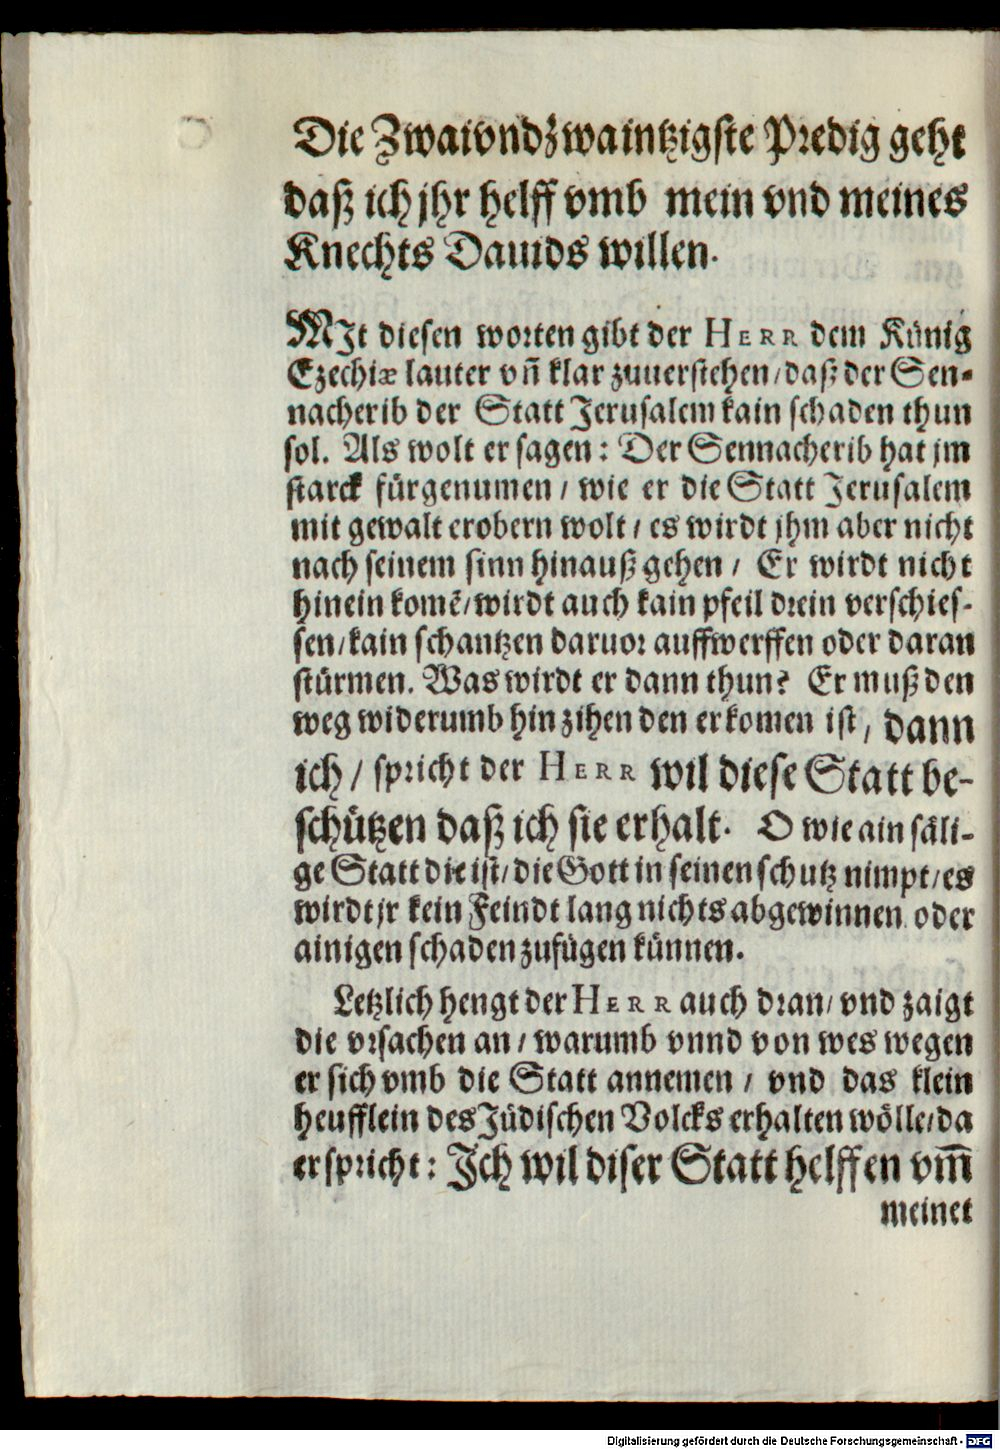 Die Zwaivndzwaintzigste Predig geht
daß ich jhr helff vmb mein vnd meines
Knechts Dauids willen.
MIt diesen worten gibt der HERR dem Künig
Ezechiæ lauter vñ klar zuuerstehen/daß der Sen-
nacherib der Statt Jerusalem kain schaden thun
sol. Als wolt er sagen: Der Sennacherib hat jm
starck fürgenumen/ wie er die Statt Jerusalem
mit gewalt erobern wolt/ es wirdt jhm aber nicht
nach seinem sinn hinauß gehen/ Er wirdt nicht
hinein komẽ/wirdt auch kain pfeil drein verschies-
sen/kain schantzen daruor auffwerffen oder daran
stürmen. Was wirdt er dann thun? Er muß den
weg widerumb hin zihen den er komen ist, dann
ich/ spricht der HERR wil diese Statt be-
schützen daß ich sie erhalt. O wie ain säli-
ge Statt die ist/die Gott in seinen schutz nimpt/es
wirdt jr kein Feindt lang nichts abgewinnen oder
ainigen schaden zufügen künnen.
Letzlich hengt der HERR auch dran/ vnd zaigt
die vrsachen an/ warumb vnnd von wes wegen
er sich vmb die Statt annemen/ vnd das klein
heufflein des Jüdischen Volcks erhalten wölle/da
er spricht: Ich wil diser Statt helffen vm̃
meinet
Digitalisierung gefördert durch die Deutsche Forschungsgemeinschaft - DFG